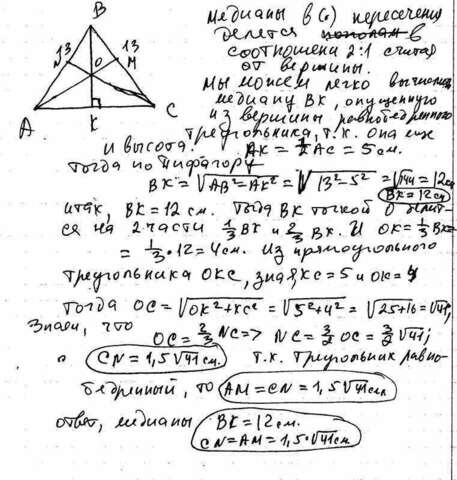 B
13
13
N
O
M
A
K
C
Медианы в (·) пересечения
делятся в
соотношении 2:1 считая
от вершины.
Мы можем легко вычислить
медиану BK, опущенную
из вершины равнобедренного
треугольника, т.к. она еще
и высота. AK = 1/2 AC = 5 см.
Тогда по Пифагору
BK = √(AB²-AK²) = √(13²-5²) = √144 = 12 см
BK = 12 см
итак, BK = 12 см. Тогда BK точкой O делит-
ся на 2 части 1/3 BK и 2/3 BK. И OK = 1/3 BK =
= 1/3 · 12 = 4 см. Из прямоугольного
треугольника OKC, зная KC = 5 и OK = 4
Тогда OC = √(OK²+KC²) = √(5²+4²) = √(25+16) = √41;
Знаем, что
OC = 2/3 NC => NC = 3/2 OC = 3/2 √41;
CN = 1,5 √41 см. т.к. треугольник равно-
бедренный, то AM = CN = 1,5 √41 см
ответ, медианы BK = 12 см.
CN = AM = 1,5 · √41 см